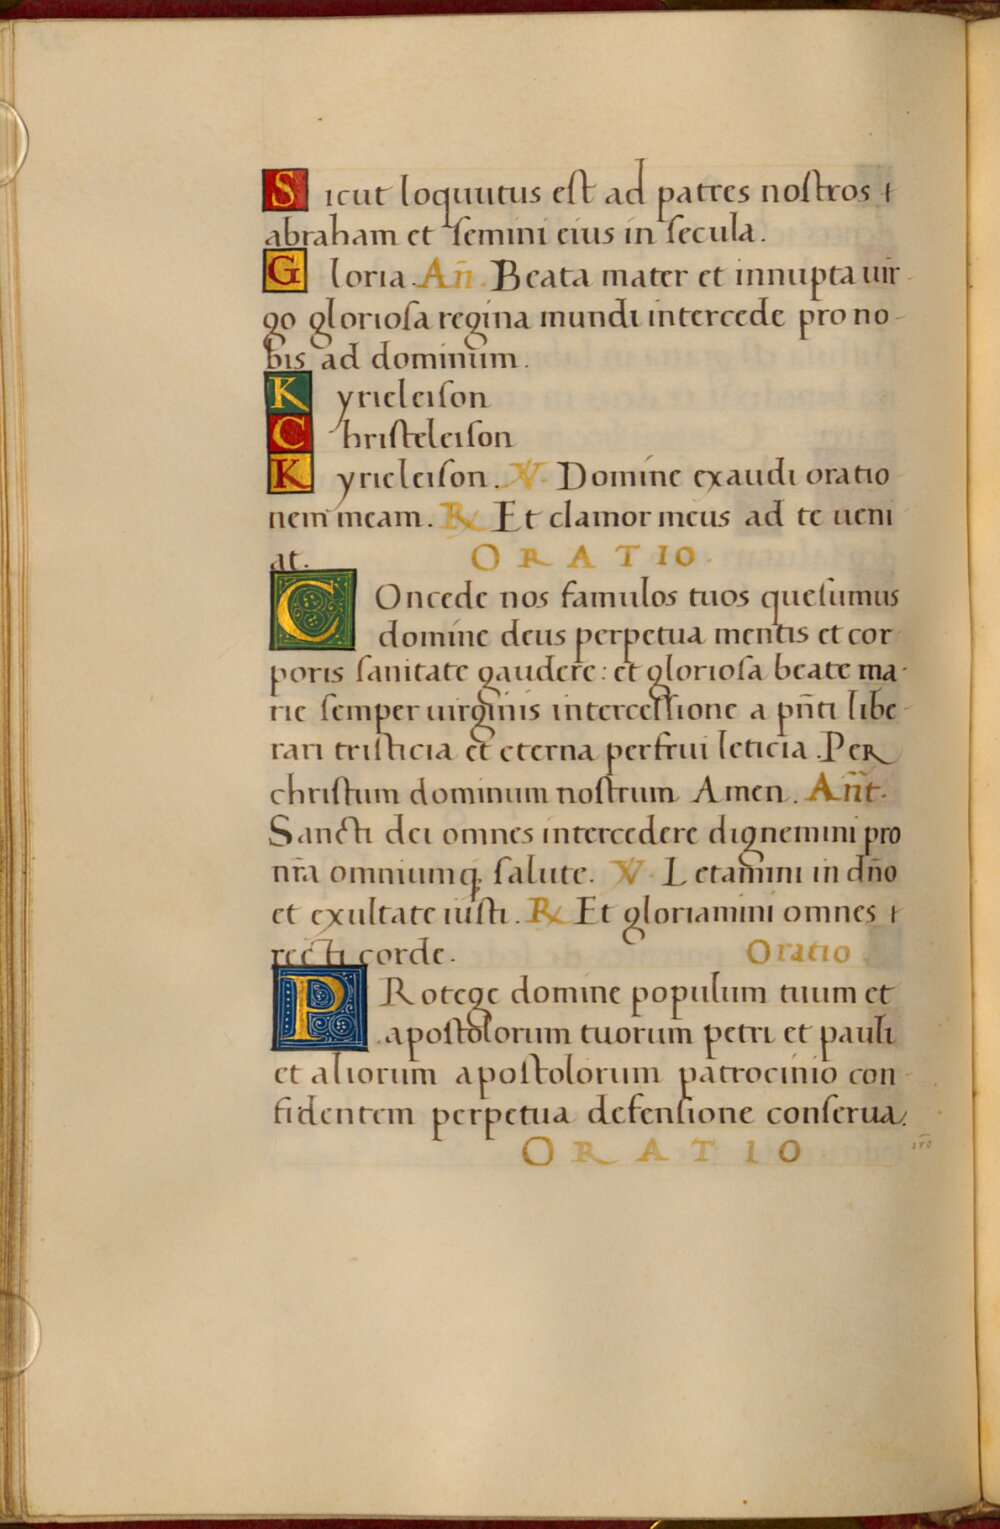 Sicut loquutus eſt ad patres noſtros ⁊
abraham et ſemini eius in ſecula.
Gloria. Añ. Beata mater et innupta uir-
go glorioſa regina mundi intercede pro no-
bis ad dominum.
Kyrieleiſon
Chriſteleiſon
Kyrieleiſon. ℣. Domine exaudi oratio
nem meam. ℟ Et clamor meus ad te ueni
at. ORATIO.
COncede nos famulos tuos queſumus
domine deus perpetua mentis et cor
poris ſanitate gaudere: et glorioſa beate ma-
rie ſemper uirginis interceſſione a pñti libe-
rari triſticia et eterna perfrui leticia. PER
chriſtum dominum noſtrum Amen. Añt.
Sancti dei omnes intercedere dignemini pro
nr̃a omniumq; ſalute. ℣. Letamini in dño
et exultate iuſti. ℟ Et gloriamini omnes ⁊
recti corde. Oratio.
PRotege domine populum tuum et
apoſtolorum tuorum petri et pauli
et aliorum apoſtolorum patrocinio con-
fidentem perpetua defenſione conſerua.
ORATIO
or̃o